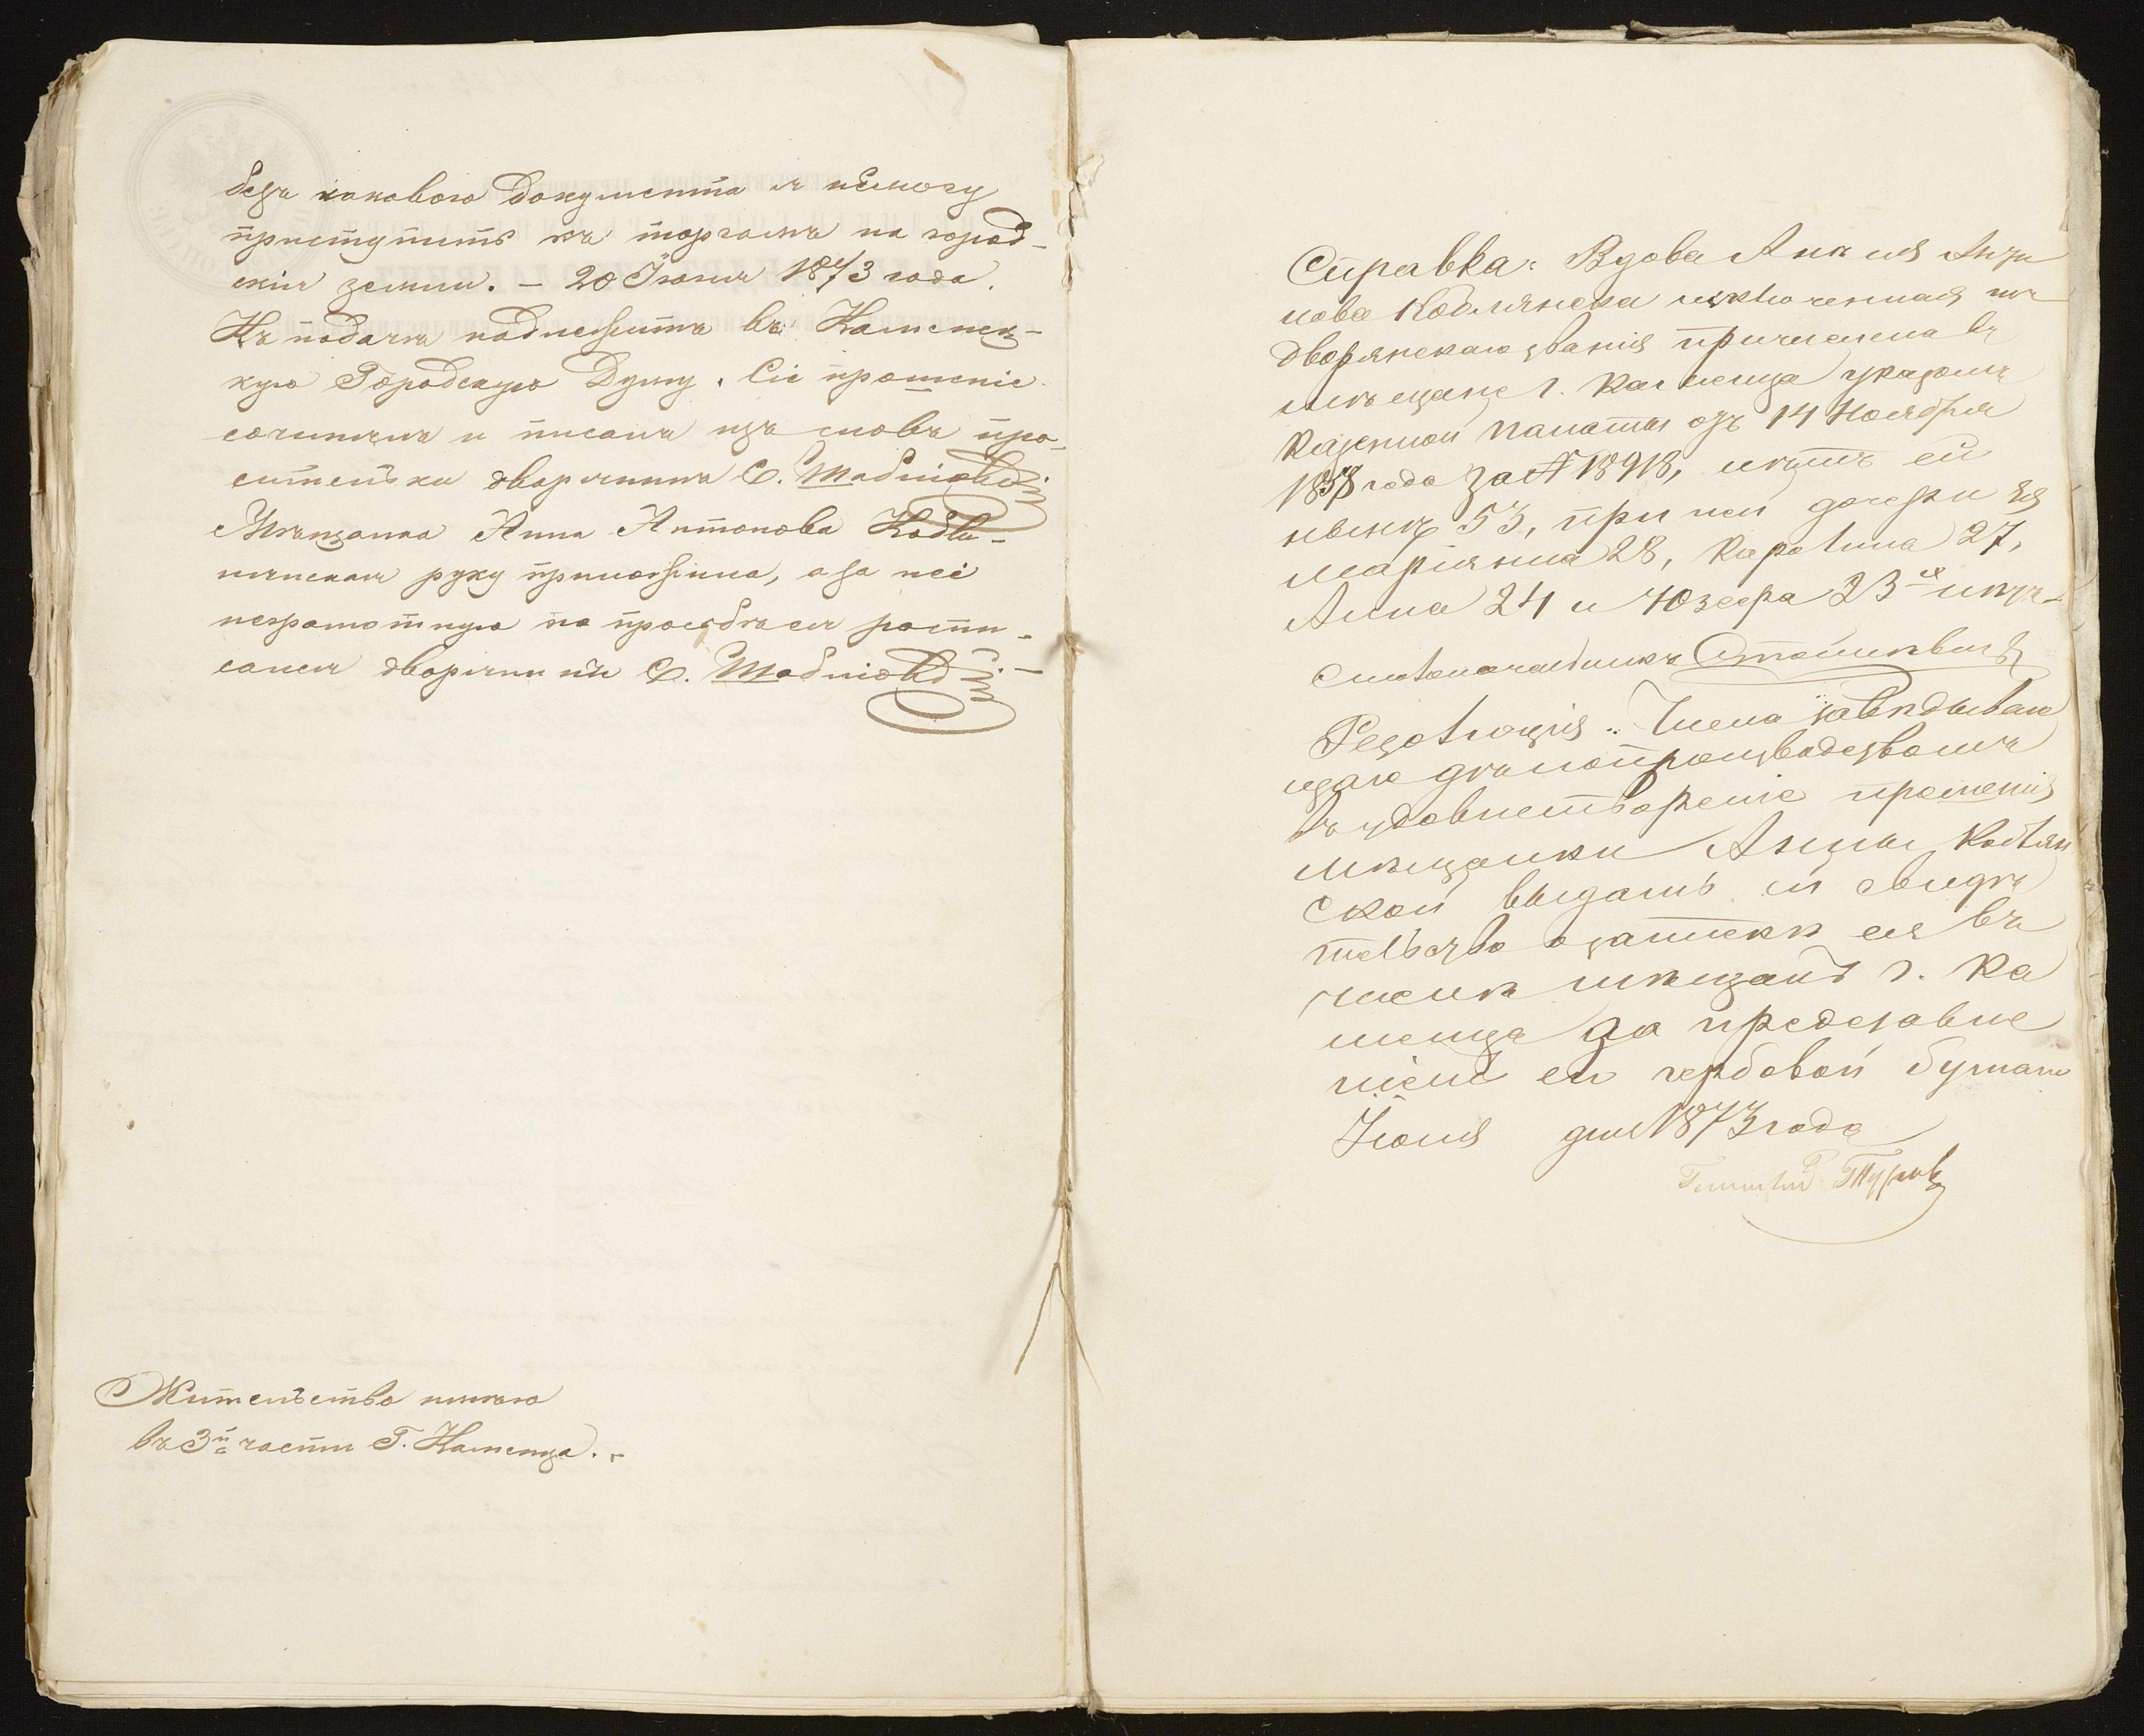 безъ каковаго документа я немогу
приступить къ торгамъ на город-
скія земли. – 20 Іюня 1873 года.
Къ подачѣ надлежитъ въ Каменец-
кую Городскую Думу. Сіе прошеніе
сочинялъ и писалъ изъ словъ про-
сительки дворянинъ С.
Мѣщанка Анна Антонова Кобы-
лянская руку приложила, а за неё
неграмотную по просьбѣ ея распи-
сался дворянинъ С.
Жительство имѣю
въ 3й части Г. Каменца.
Справка: Вдова Анна Анто
нова Коблянска исключенная изъ
дворянскаго званія причислена въ
мѣщане г. Каменца указомъ
Казенной палаты отъ 14 Ноября
1858 года за № 18918, лѣтъ ей
нынѣ 53, при ней дочери ея
Маріянна 28, Каролина 27,
Анна 24 и Юзефа 23
Столоначальникъ
Резолюція: Члена завѣдываю
щаго дѣлопроизводствомъ
Въ удовлетвореніе прошенія
мѣщанки Анны Коблян
ской выдать ей свидѣ
тельство о запискѣ ея въ
число мѣщанъ г. Ка
менца за представле
ніемъ ею гербовой бумаги
Іюня дня 1873 года